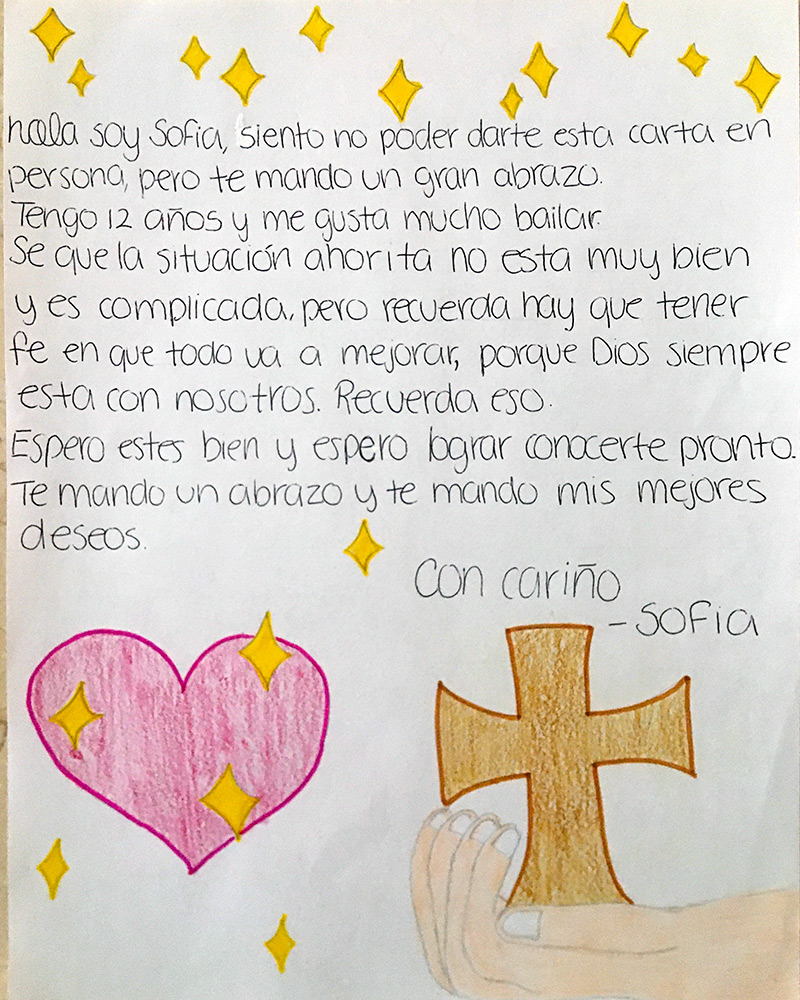 hola soy Sofia, siento no poder darte esta carta en
persona, pero te mando un gran abrazo.
Tengo 12 años y me gusta mucho bailar.
Se que la situación ahorita no esta muy bien
y es complicada, pero recuerda hay que tener
fe en que todo va a mejorar, porque Dios siempre
esta con nosotros. Recuerda eso.
Espero estes bien y espero lograr conocerte pronto.
Te mando un abrazo y te mando mis mejores
deseos.
Con cariño
-Sofia